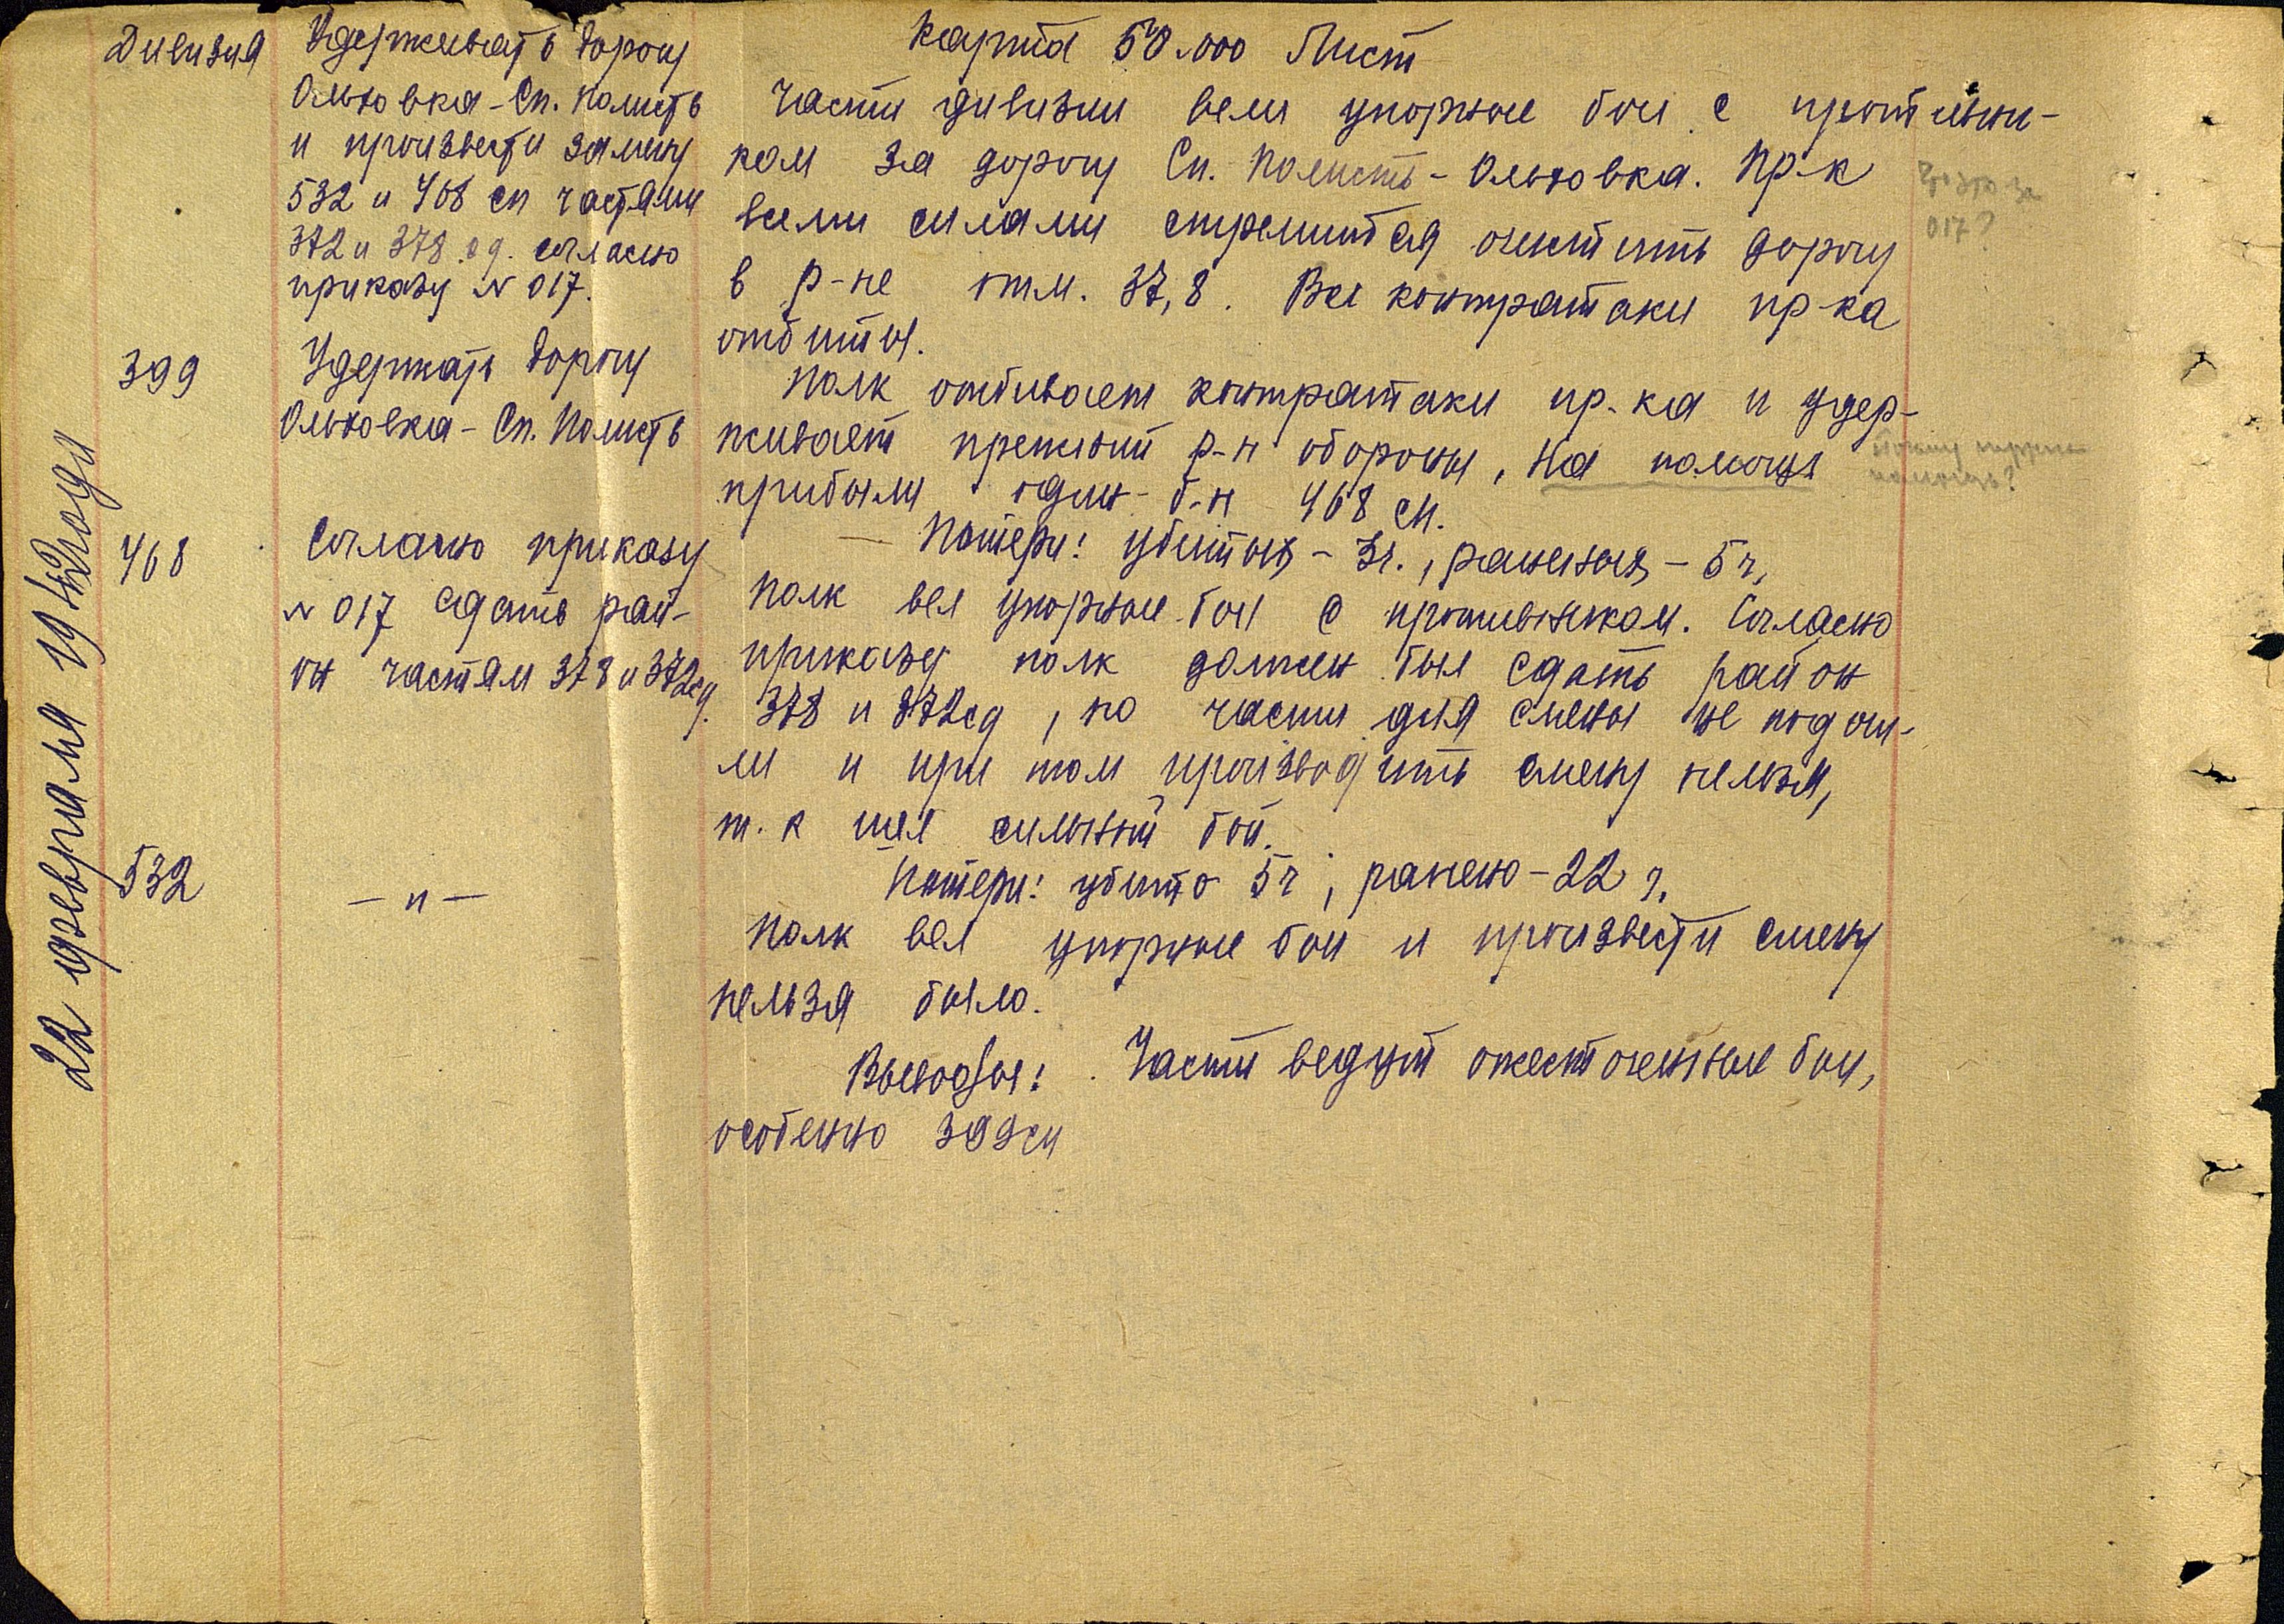 22 февраля 1942 года
Дивизия
Удерживать дорогу
Ольховка - Сп. Полисть
и произвести замену
532 и 468 сп частями
372 и 378 сд. согласно
приказу № 017.
Карта 50.000 Лист
Части дивизии вели упорные бои с противни-
ком за дорогу Сп. Полисть - Ольховка. Пр-к
всеми силами стремится очистить дорогу
в р-не отм. 37,8. Все контратаки пр-ка
отбиты.
017?
399
Удержать дорогу
Ольховка - Сп. Полисть
Полк отбивает контратаки пр-ка и удер-
живает прежний р-н обороны, на помощь
прибыли один б-н 468 сп.
Потери: убитых - 3ч., раненых - 5ч.
помощь?
468
Согласно приказу
№ 017 сдать рай-
он частям 378 и 372сд.
Полк вел упорные бои с противником. Согласно
приказу полк должен был сдать район
378 и 372сд, но части для смены не подош-
ли и при том производить смену нельзя,
т. к шел сильный бой.
Потери: убито 5ч, ранено - 22 ч.
532
— п —
Полк вел упорные бои и произвести смену
нельзя было.
Выводы: Части ведут ожесточенные бои,
особенно 399сп